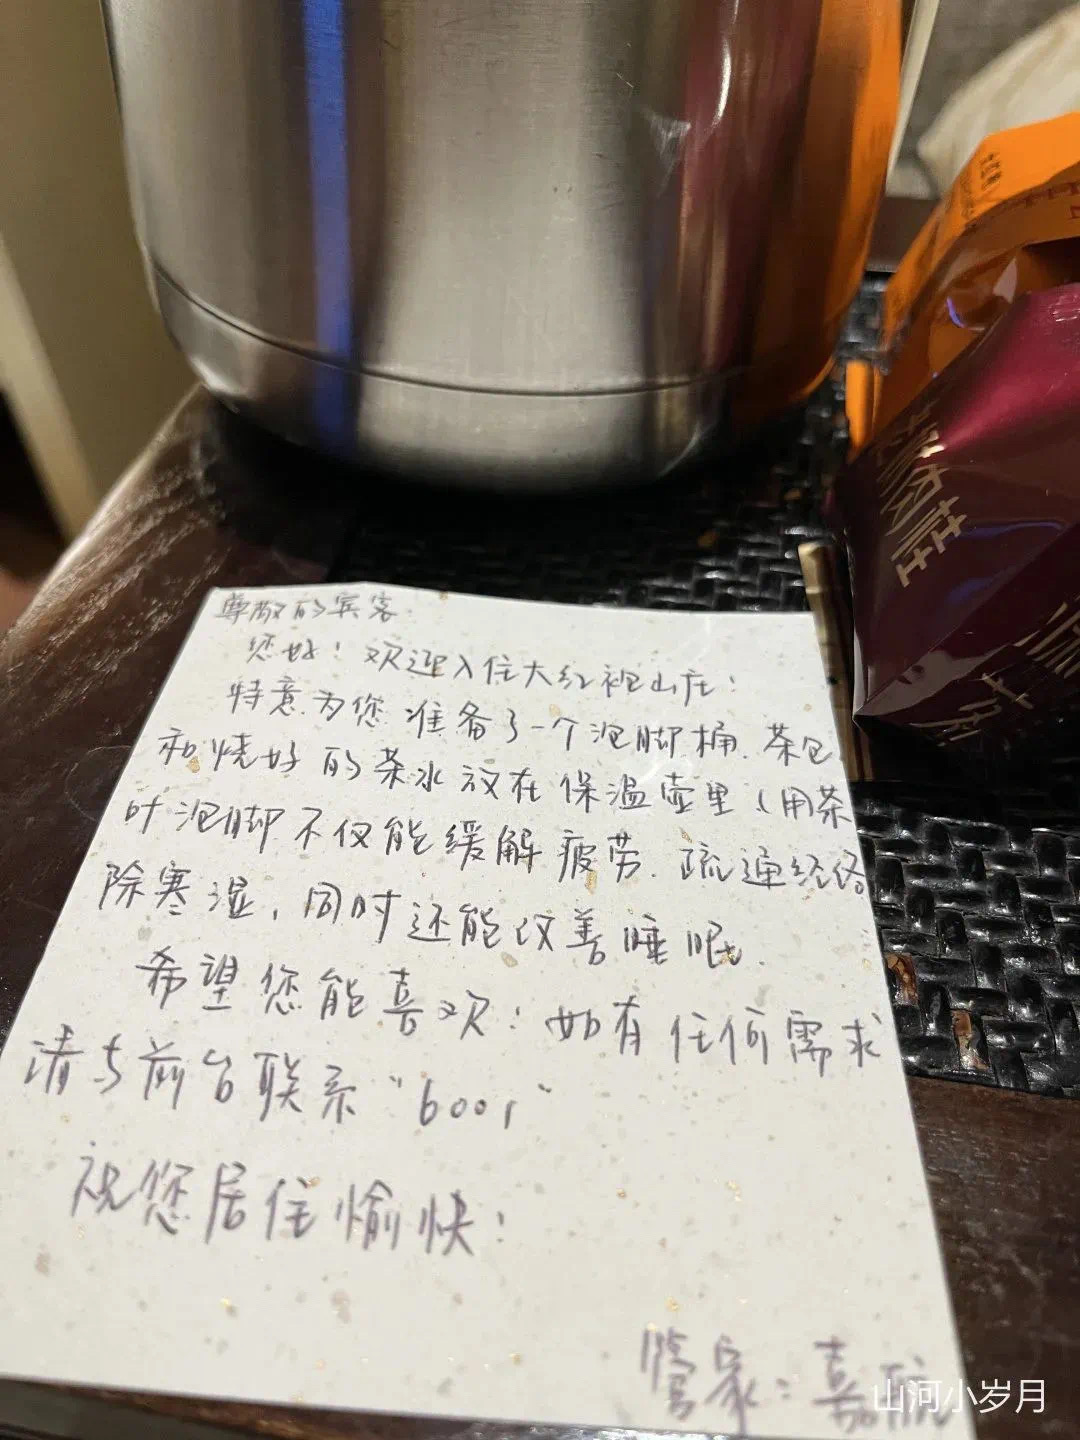 尊敬的宾客:
您好！欢迎入住大红袍山庄！
特意为您准备了一个泡脚桶.茶包
和烧好的茶水放在保温壶里(用茶
叶泡脚不仅能缓解疲劳.疏通经络
除寒湿,同时还能改善睡眠.
希望您能喜欢！如有任何需求
请与前台联系"6001"
祝您居住愉快！
管家：嘉
肉社
山河小岁月